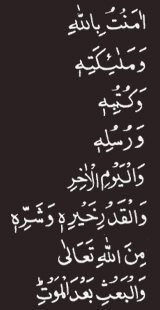 اٰمَنْتُ بِاللّٰهِ
وَمَلٰئِكَتِهٖ
وَكُتُبِهٖ
وَرُسُلِهٖ
وَالْيَوْمِ الْاٰخِرِ
وَالْقَدْرِ خَيْرِهٖ وَشَرِّهٖ
مِنَ اللّٰهِ تَعَالٰى
وَالْبَعْثِ بَعْدَ الْمَوْتِ